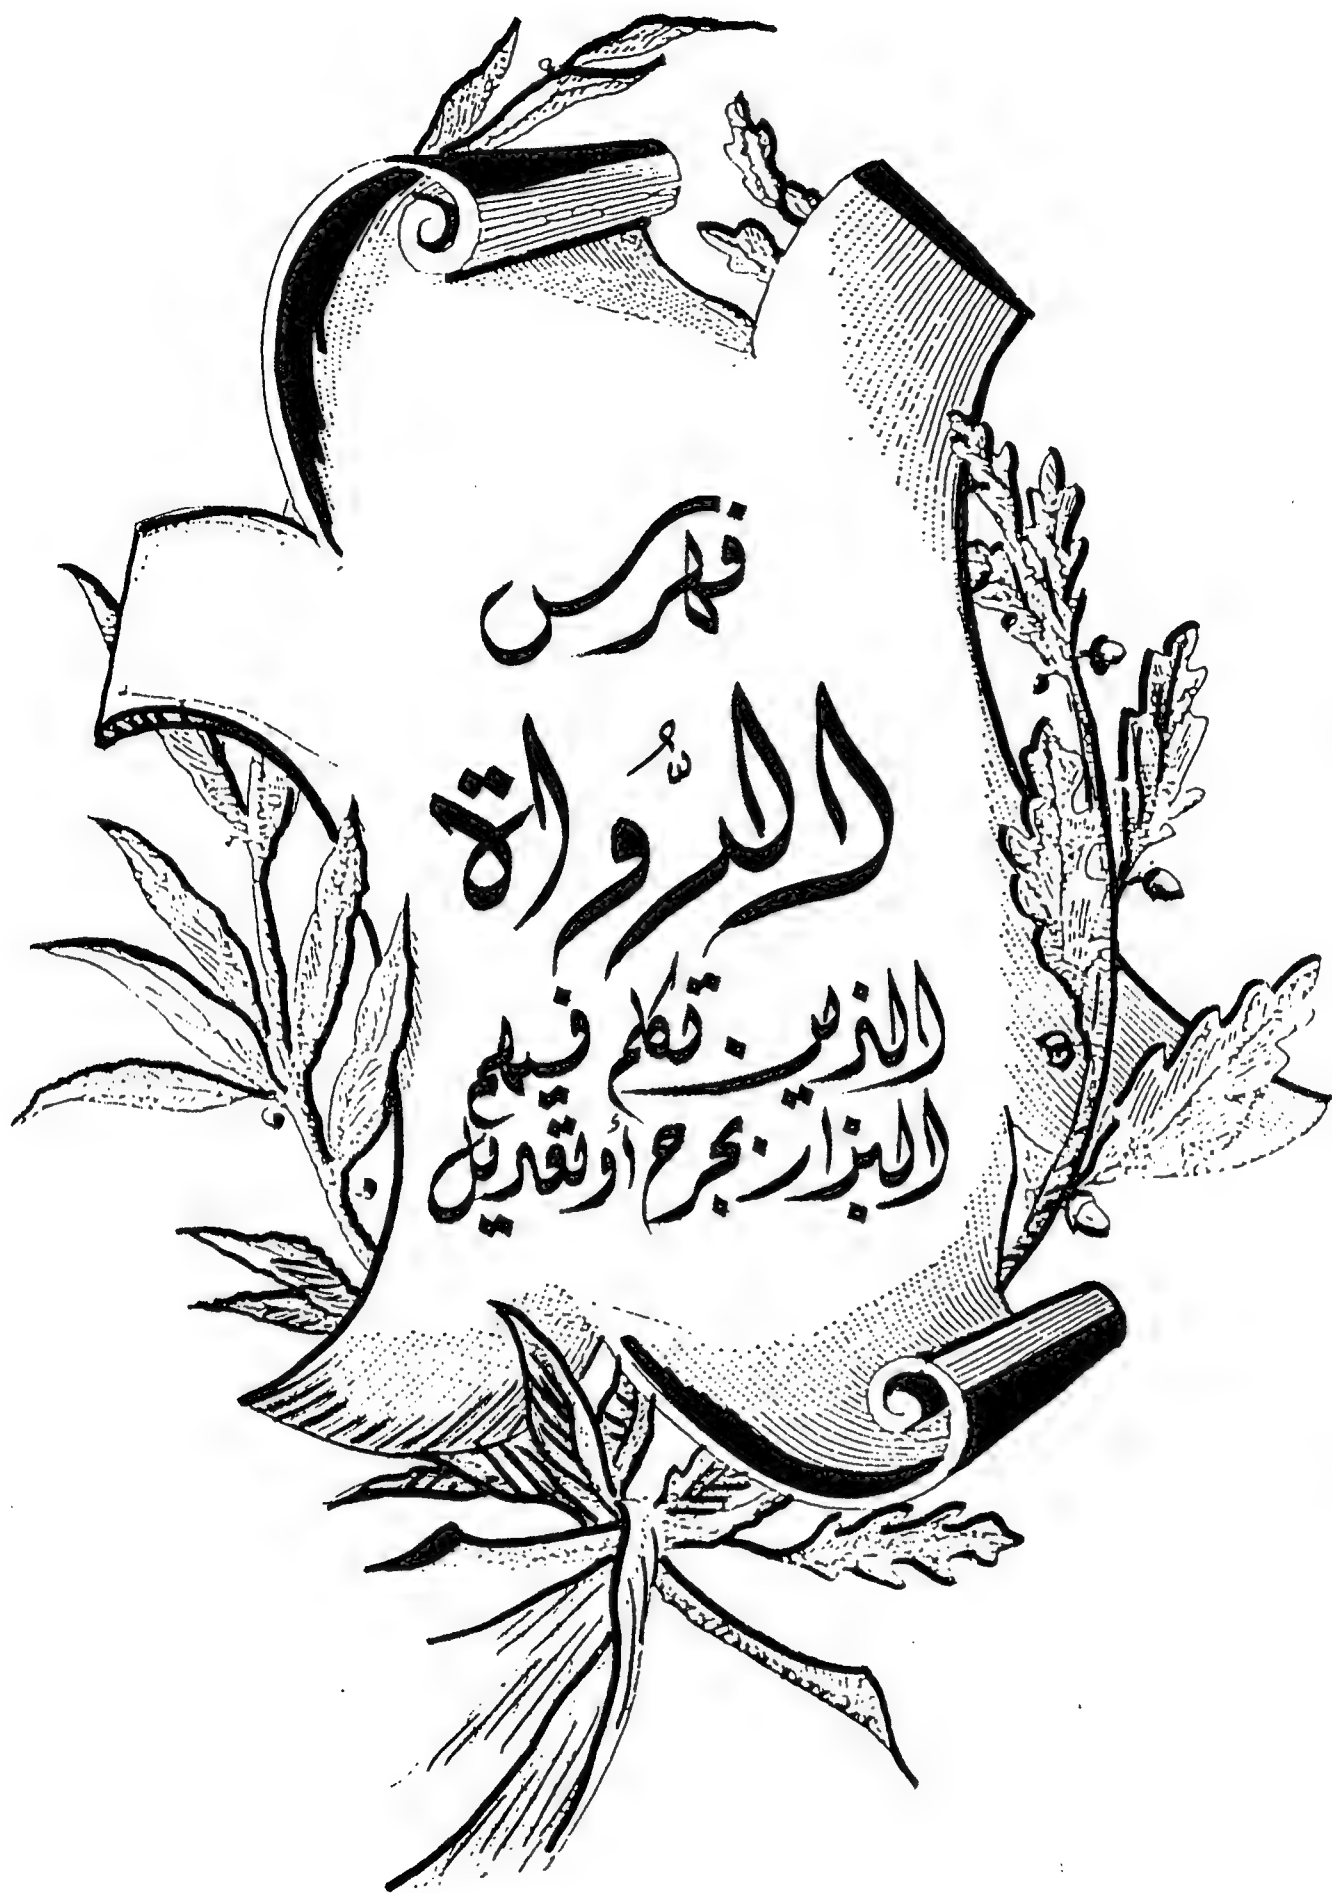 فهرس
الرُّواة
الذين تكلم فيهم
البزار بجرح أو تعديل